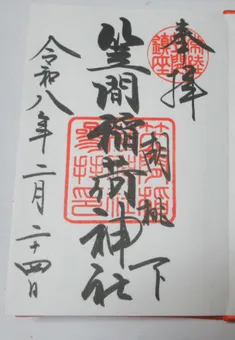 奉拝
笠間稲荷神社
胡桃下
令和八年二月二十四日